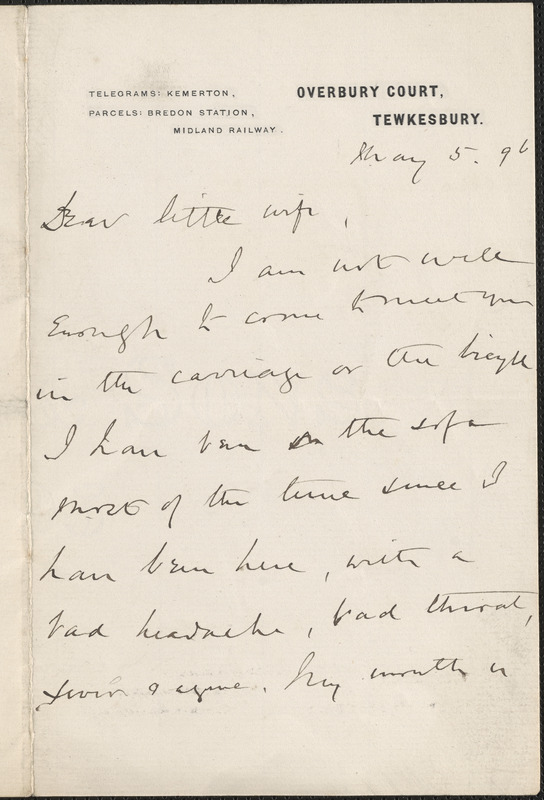 TELEGRAMS: KEMERTON,
PARCELS: BREDON STATION,
MIDLAND RAILWAY.
OVERBURY COURT,
TEWKESBURY.
May 5. 96
Dear little wife,
I am not well
enough to come to meet you
in the carriage or the bicycle
I have been on the sofa
most of the time since I
have been here, with a
bad headache, bad throat,
fever & ague. My mouth is